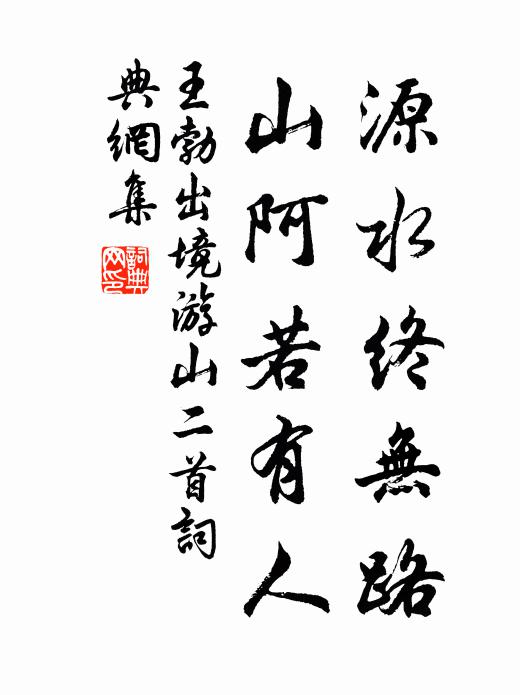 源水終無路
山阿若有人
王勃出境游山二首詞
典網集
詞典
网印